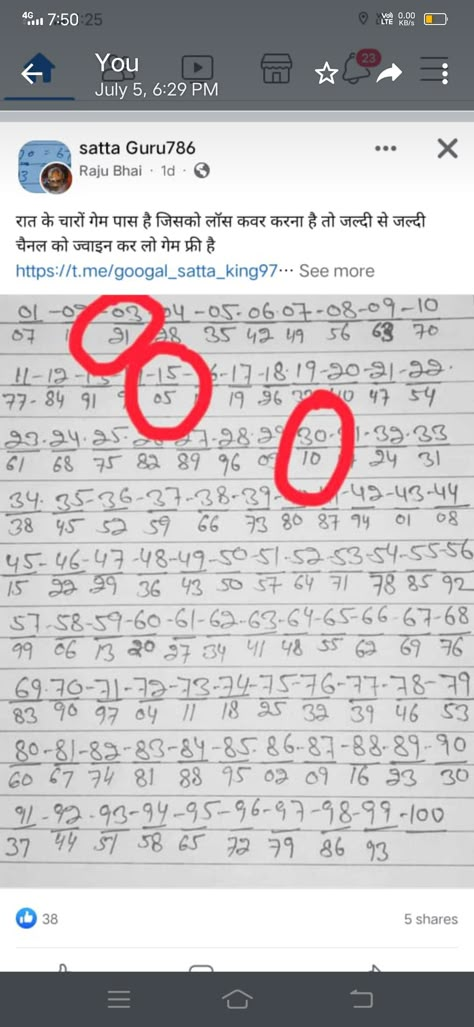 4G 7:50:25 VoLTE 0.00 KB/s
You
July 5, 6:29 PM
23
satta Guru786
Raju Bhai · 1d
रात के चारों गेम पास है जिसको लॉस कवर करना है तो जल्दी से जल्दी
चैनल को ज्वाइन कर लो गेम फ्री है
https://t.me/googal_satta_king97… See more
01 - - 03 - 04 - 05 - 06 - 07 - 08 - 09 - 10
07 21 28 35 42 49 56 63 70
11 - 12 - 15 - 17 - 18 - 19 - 20 - 21 - 22
77 - 84 91 05 19 26 40 47 54
23 - 24 - 25 - 27 - 28 - 30 - 32 - 33
61 68 75 82 89 96 10 24 31
34 - 35 - 36 - 37 - 38 - 39 - 42 - 43 - 44
38 45 52 59 66 73 80 87 94 01 08
45 - 46 - 47 - 48 - 49 - 50 - 51 - 52 - 53 - 54 - 55 - 56
15 22 29 36 43 50 57 64 71 78 85 92
57 - 58 - 59 - 60 - 61 - 62 - 63 - 64 - 65 - 66 - 67 - 68
99 06 13 20 27 34 41 48 55 62 69 76
69 - 70 - 71 - 72 - 73 - 74 - 75 - 76 - 77 - 78 - 79
83 90 97 04 11 18 25 32 39 46 53
80 - 81 - 82 - 83 - 84 - 85 - 86 - 87 - 88 - 89 - 90
60 67 74 81 88 95 02 09 16 23 30
91 - 92 - 93 - 94 - 95 - 96 - 97 - 98 - 99 - 100
37 44 51 58 65 72 79 86 93
38 5 shares